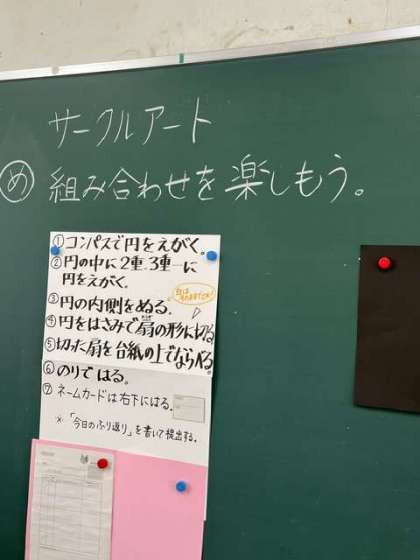 サークルアート
め 組み合わせを楽しもう。
①コンパスで円をえがく。
②円の中に2重、3重…に
円をえがく。
③円の内側をぬる。
④円をはさみで扇の形に切る
⑤切った扇を台紙の上でならべる。
⑥のりではる。
⑦ネームカードは右下にはる。
※「今日のふり返り」を書いて提出する。